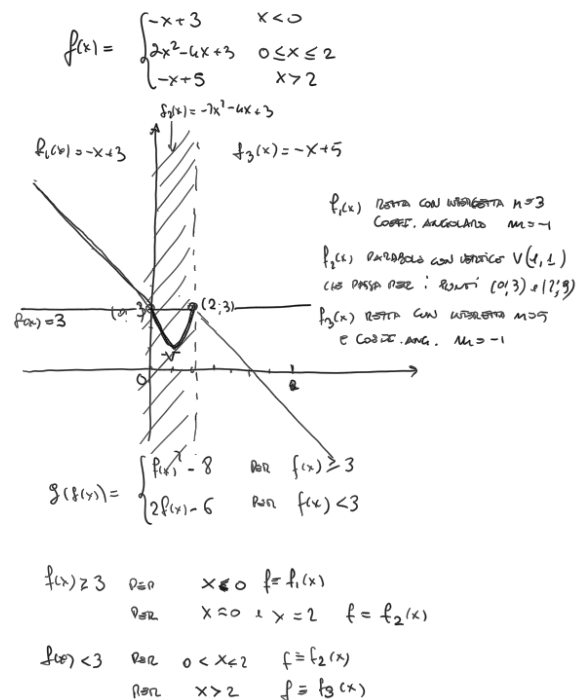 f(x) = { -x+3 x<0
2x²-4x+3 0≤x≤2
-x+5 x>2
f₂(x)=-2x²-4x+3
f₁(x)=-x+3
f₃(x)=-x+5
f₁(x) RETTA CON INTERCETTA n=3
COEFF. ANGOLARE m=-1
f₂(x) PARABOLA CON VERTICE V(1,1)
CHE PASSA PER i PUNTI (0;3) e (2;3)
f₃(x) RETTA CON INTERCETTA n=5
E COEFF. ANG. m=-1
(0;3)
(2;3)
f(x)=3
V
0
g(f(x)) = { f(x)²-8 PER f(x)≥3
2f(x)-6 PER f(x)<3
f(x)≥3 PER x<0 f=f₁(x)
PER x=0 e x=2 f=f₂(x)
f(x)<3 PER 0<x<2 f=f₂(x)
PER x>2 f=f₃(x)